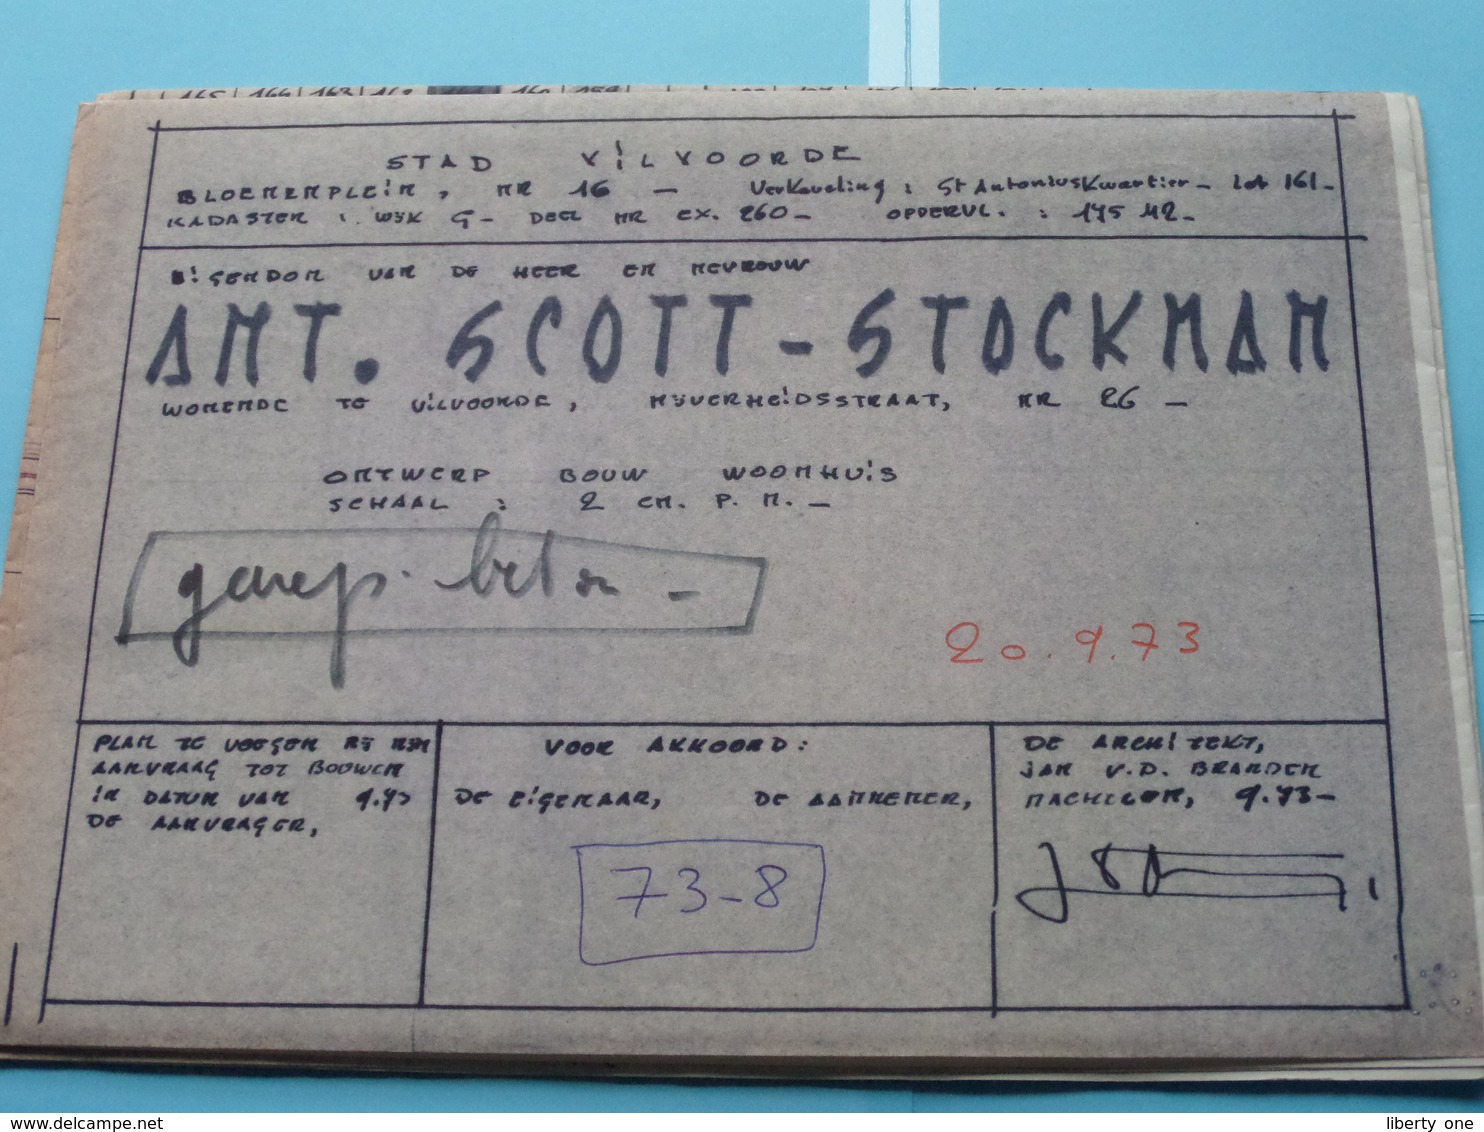 165 164 163 162 160 159
STAD VILVOORDE
BLOEMENPLEIN, NR 16 - Verkaveling : St Antoniuskwartier - Lot 161 -
KADASTER : WIJK G - DEEL NR EX. 260 - OPPERVL. : 175 M2 -
EIGENDOM VAN DE HEER EN MEVROUW
ANT. SCOTT - STOCKMAN
WONENDE TE VILVOORDE, NIJVERHEIDSSTRAAT, NR 26 -
ONTWERP BOUW WOONHUIS
SCHAAL : 2 CM. P. M. -
gewap. beton -
20.9.73
PLAN TE VOEGEN BIJ MIJN
AANVRAAG TOT BOUWEN
IN DATUM VAN 9.73
DE AANVRAGER,
VOOR AKKOORD :
DE EIGENAAR, DE AANNEMER,
73-8
DE ARCHITEKT,
JAN V.D. BRANDEN
MACHELEN, 9.73 -
www.delcampe.net
liberty one